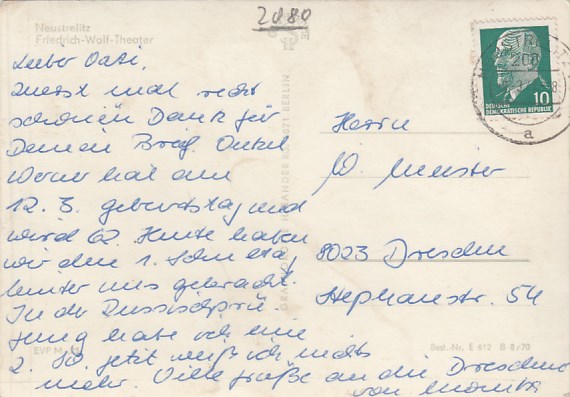 2080
Neustrelitz
Friedrich-Wolf-Theater
Lieber Vati,
zuerst mal recht
schönen Dank für
Deinen Brief. Onkel
Werner hat am
12. 3. geburtstag und
wird 62. Heute haben
wir den 1. Schultag
hinter uns gebracht.
In der Russischprü-
fung habe ich eine
2. So, jetzt weiß ich nichts
mehr. Viele grüße an die Dresdner
von Monika
Herrn
W. Meister
8023 Dresden
Stephanstr. 54
10
DEUTSCHE
DEMOKRATISCHE REPUBLIK
a
1071 BERLIN
EVP M
Best.-Nr. E 412 B 8/70